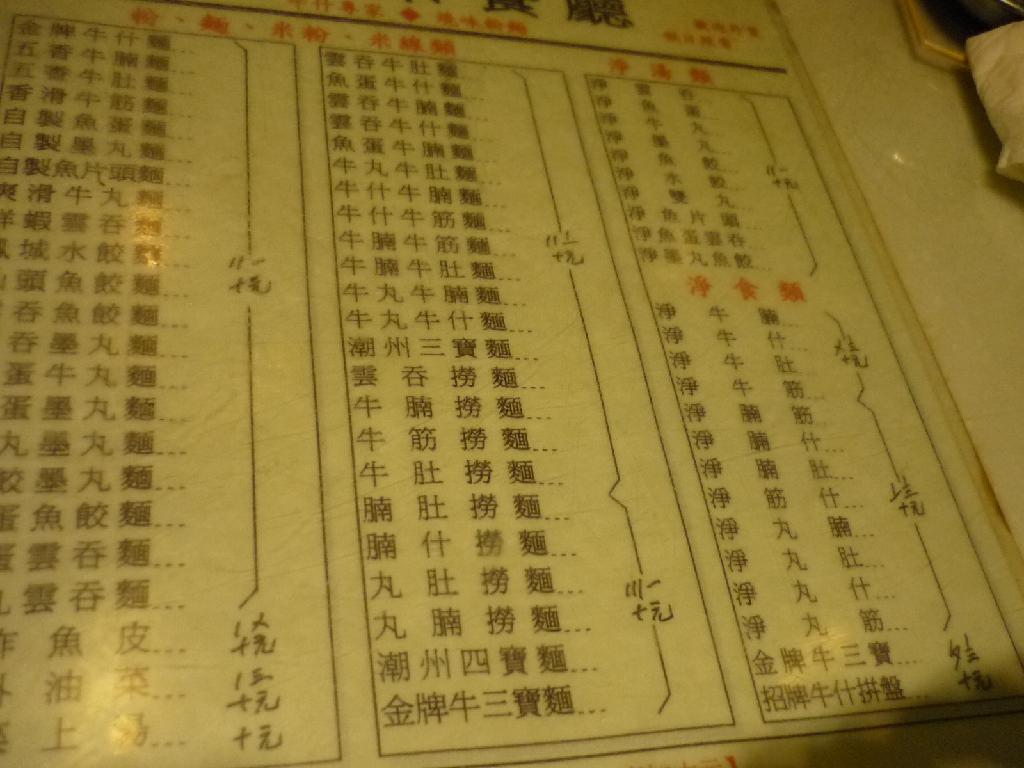 餐廳
牛什專家◆燒味粉麵
粉、麵、米粉、米線類
金牌牛什麵
五香牛腩麵
五香牛肚麵
香滑牛筋麵
自製魚蛋麵
自製墨丸麵
自製魚片頭麵
爽滑牛丸麵
鮮蝦雲吞麵
鳳城水餃麵
汕頭魚餃麵
雲吞魚餃麵
吞墨丸麵
蛋牛丸麵
蛋墨丸麵
丸墨丸麵
餃墨丸麵
蛋魚餃麵
蛋雲吞麵
雲吞麵
炸魚皮
油菜
上湯
十元
雲吞牛肚麵
魚蛋牛什麵
雲吞牛腩麵
雲吞牛什麵
魚蛋牛腩麵
牛丸牛肚麵
牛什牛腩麵
牛什牛筋麵
牛腩牛筋麵
牛腩牛肚麵
牛丸牛腩麵
牛丸牛什麵
潮州三寶麵
雲吞撈麵
牛腩撈麵
牛筋撈麵
牛肚撈麵
腩肚撈麵
腩什撈麵
丸肚撈麵
丸腩撈麵
潮州四寶麵
金牌牛三寶麵
淨湯類
淨雲吞
淨魚蛋
淨牛丸
淨墨丸
淨魚餃
淨水餃
淨雙丸
淨魚片頭
淨魚蛋雲吞
淨墨丸魚餃
淨食類
淨牛腩
淨牛什
淨牛肚
淨牛筋
淨腩筋
淨腩什
淨腩肚
淨筋什
淨丸腩
淨丸肚
淨丸什
淨丸筋
金牌牛三寶
招牌牛什拼盤